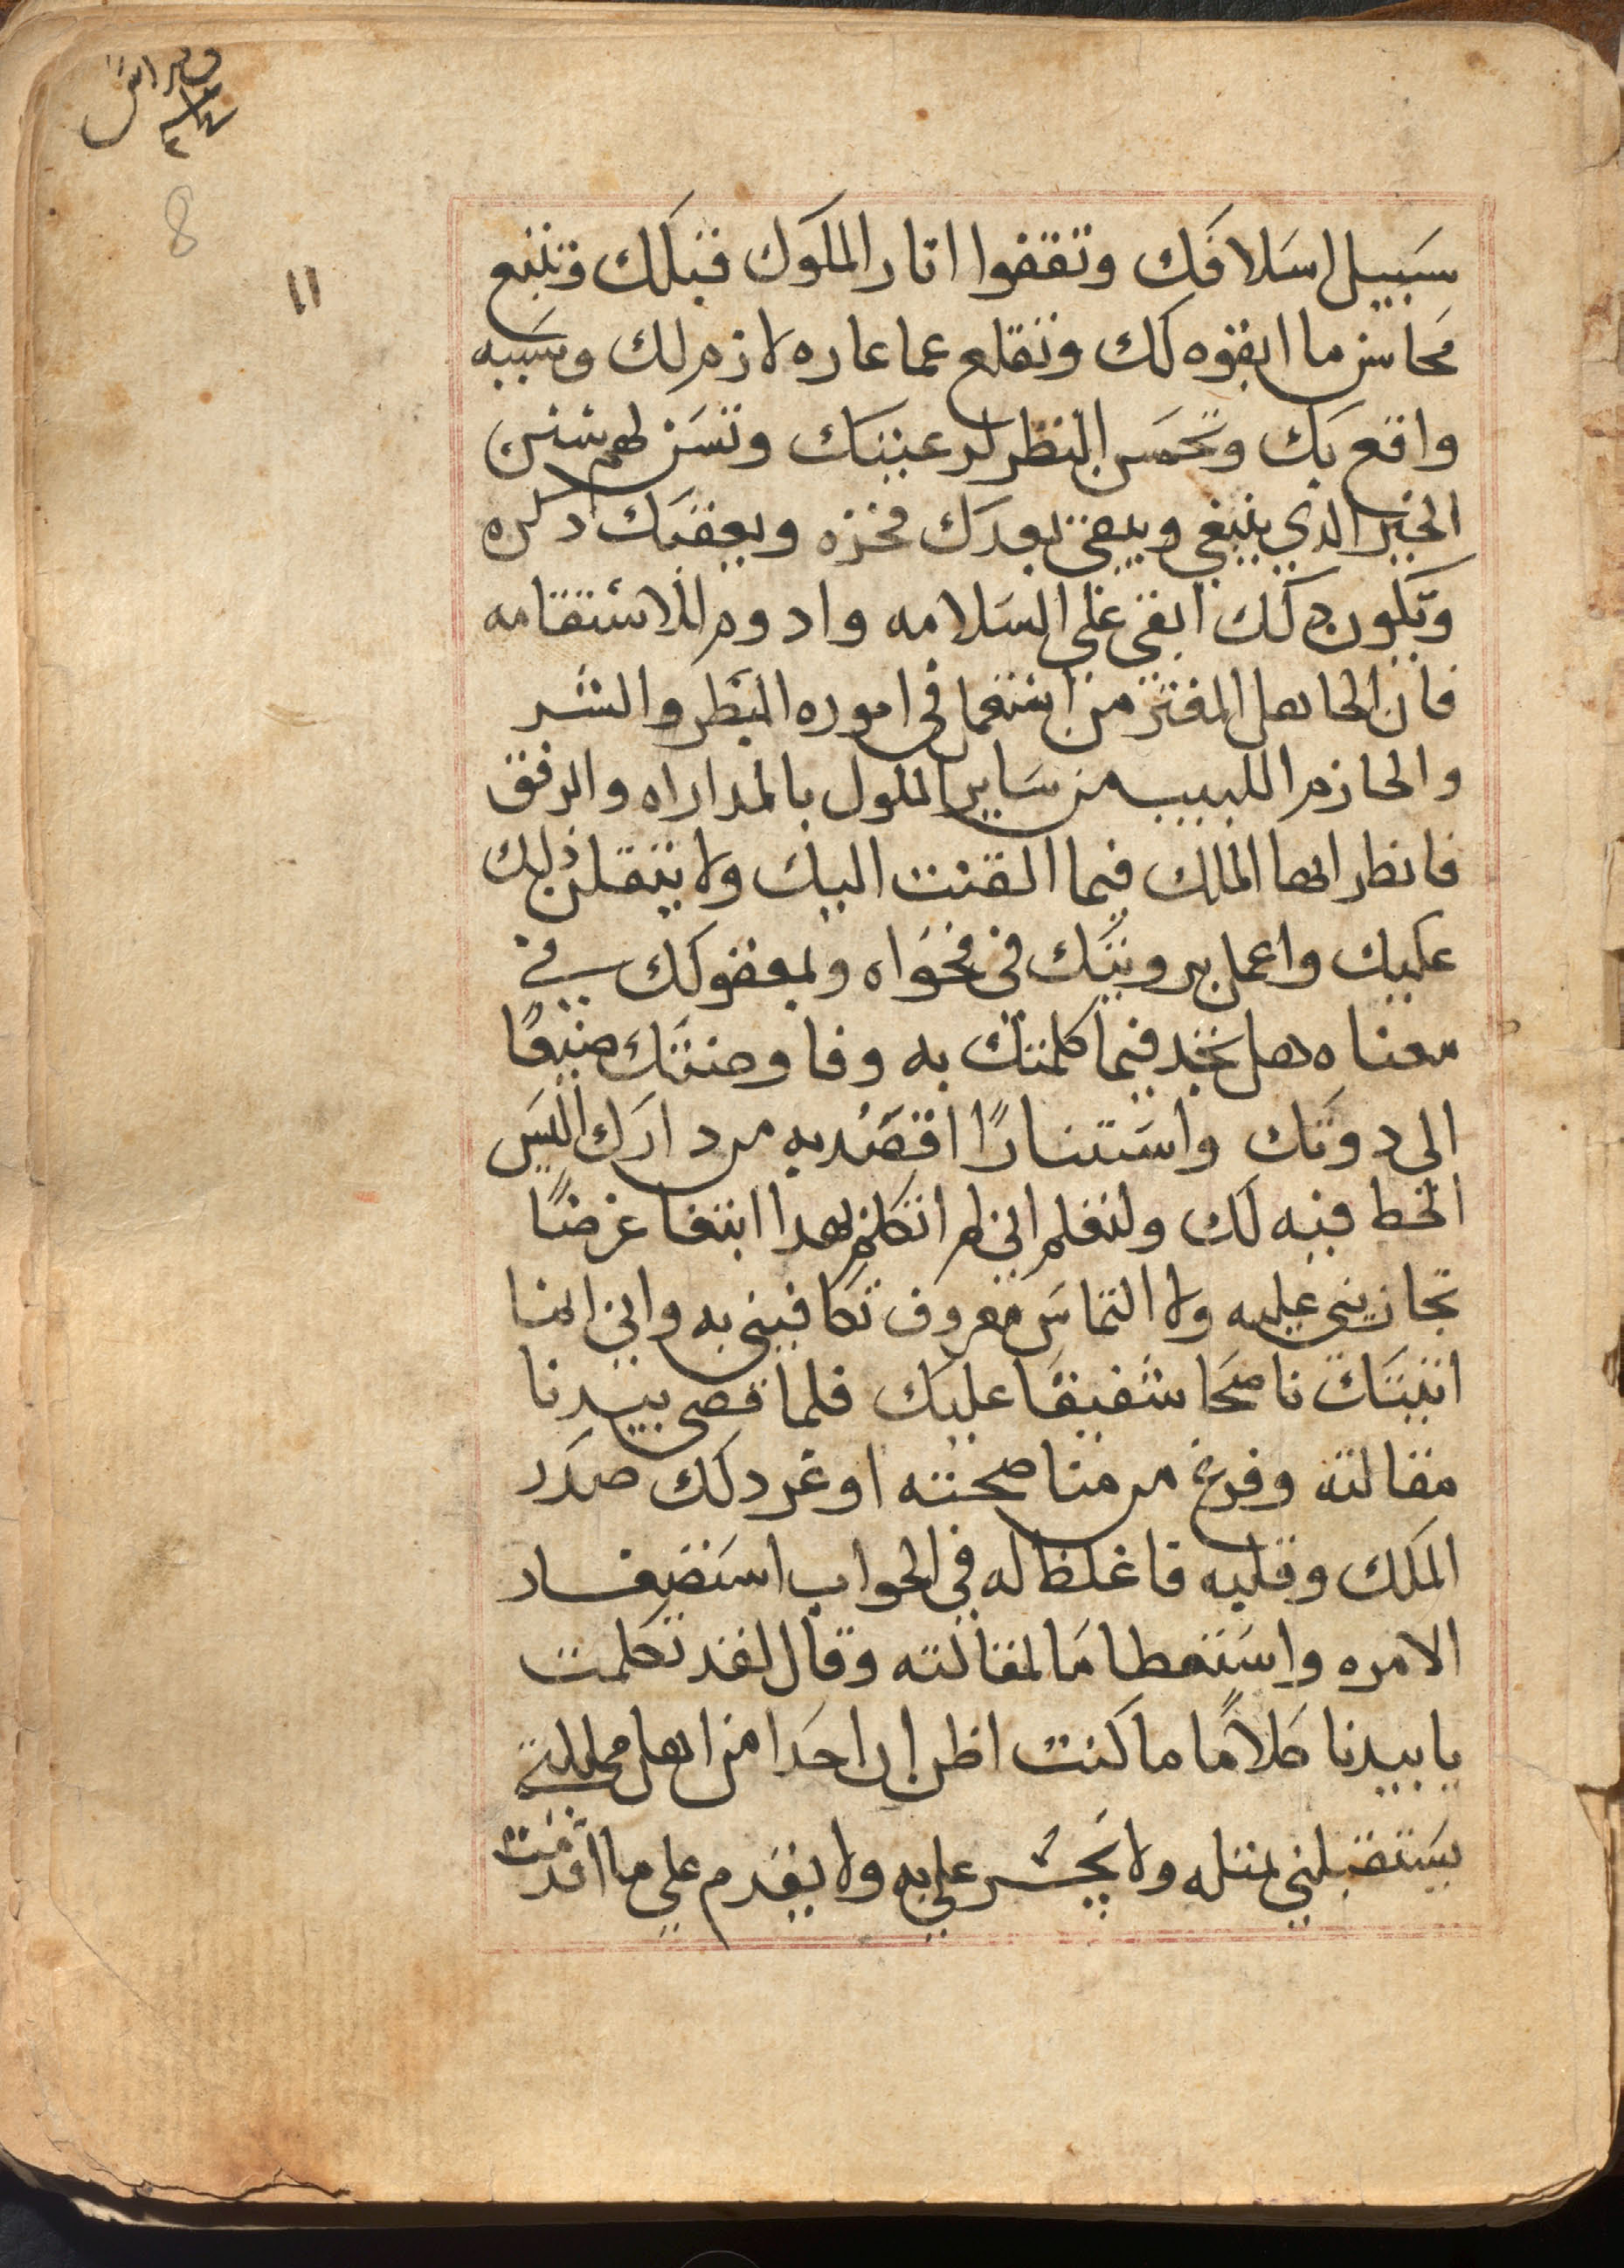 8
١١
سبيل اسلافك وتقفوا اثار الملوك قبلك وتتبع
محاسن ما ابقوه لك وتقلع عما عاره لازم لك وسببه
واقع بك وتحسن النظر لرعيتك وتسن لهم سنن
الخير الدي ينبغي ويبقى بعدك فخره ويعقبك دكره
ويكون دلك ابقي على السلامه وادوم للاستقامه
فان الجاهل المغتر من استعمل في اموره البطر والشر
والحازم اللبيب من ساير الملوك بالمداراه والرفق
فانظر ايها الملك فيما القيت اليك ولا يثقلن ذلك
عليك واعمل برويتك في فحواه ولمعقولك في
معناه هل تجد فيما كلمتك به وفاوضتك ضيفا
الى دونك واستنارًا اقصد به مردارك اليس
الخط فيه لك ولتعلم اني لم اتكلم بهدا ابتغا عرضًا
تجازيني عليه ولا التماس معروف تكافيني به واني انما
اتيتك ناصحا شفيقا عليك فلما قضى بيدبا
مقالته وفرغ من مناصحته اوغر دلك صدر
الملك وقلبه فاغلظ له في الجواب استصغار
الامره واستعظاما لمقالته وقال لقد تكلمت
يا بيدبا كلامًا ما كنت اظن ان احدا من اهل مملكتي
يستقبلني بمثله ولا يجسر عليه ولا يقدم على ما اقدمت